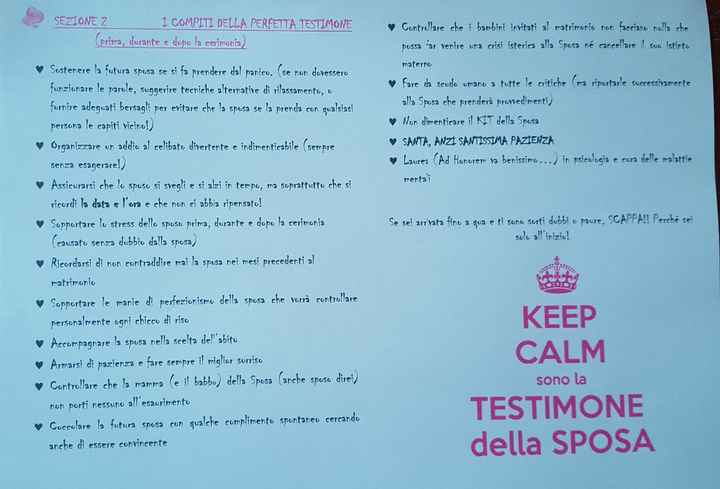 SEZIONE 2 I COMPITI DELLA PERFETTA TESTIMONE
(prima, durante e dopo la cerimonia)
♥ Sostenere la futura sposa se si fa prendere dal panico. (se non dovessero
funzionare le parole, suggerire tecniche alternative di rilassamento, o
fornire adeguati bersagli per evitare che la sposa se la prenda con qualsiasi
persona le capiti vicino!)
♥ Organizzare un addio al celibato divertente e indimenticabile (sempre
senza esagerare!)
♥ Assicurarsi che lo sposo si svegli e si alzi in tempo, ma soprattutto che si
ricordi la data e l'ora e che non ci abbia ripensato!
♥ Sopportare lo stress dello sposo prima, durante e dopo la cerimonia
(causato senza dubbio dalla sposa)
♥ Ricordarsi di non contraddire mai la sposa nei mesi precedenti al
matrimonio
♥ Sopportare le manie di perfezionismo della sposa che vorrà controllare
personalmente ogni chicco di riso
♥ Accompagnare la sposa nella scelta dell'abito
♥ Armarsi di pazienza e fare sempre il miglior sorriso
♥ Controllare che la mamma (e il babbo) della Sposa (anche sposo direi)
non porti nessuno all'esaurimento
♥ Coccolare la futura sposa con qualche complimento spontaneo cercando
anche di essere convincente
♥ Controllare che i bambini invitati al matrimonio non facciano nulla che
possa far venire una crisi isterica alla Sposa né cancellare il suo istinto
materno
♥ Fare da scudo umano a tutte le critiche (ma riportarle successivamente
alla Sposa che prenderà provvedimenti)
♥ Non dimenticare il KIT della Sposa
♥ SANTA, ANZI SANTISSIMA PAZIENZA
♥ Laurea (Ad Honorem va benissimo...) in psicologia e cura delle malattie
mentali
Se sei arrivata fino a qua e ti sono sorti dubbi o paure, SCAPPA!! Perché sei
solo all'inizio!
KEEP
CALM
sono la
TESTIMONE
della SPOSA